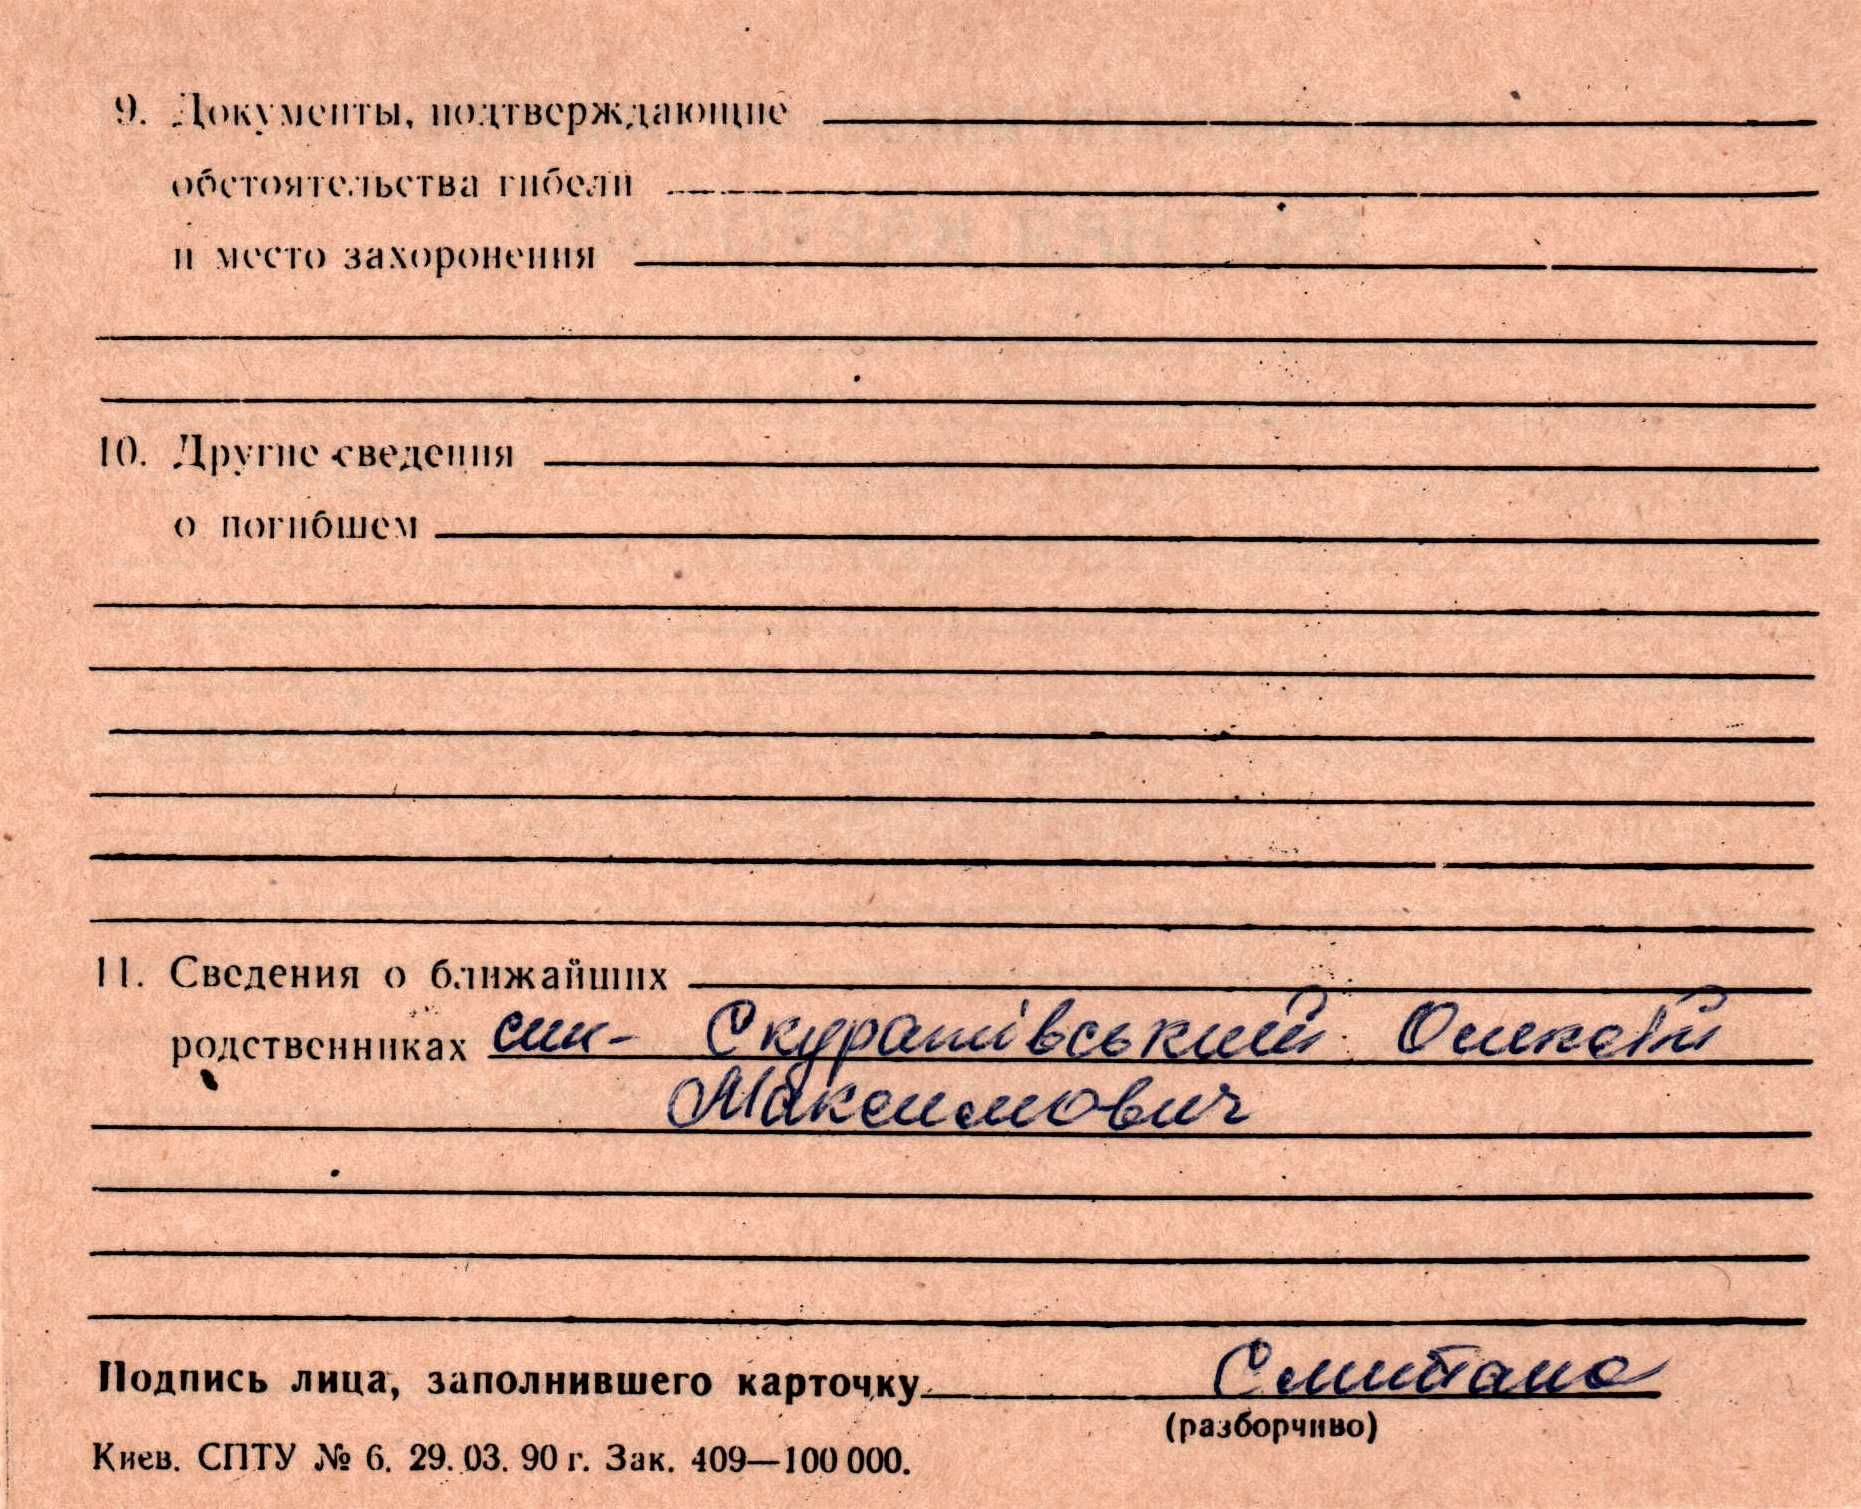 9. Документы, подтверждающие
обстоятельства гибели
и место захоронения
10. Другие сведения
о погибшем
11. Сведения о ближайших
родственниках син- Скуратівський Олексій
Максимович
Подпись лица, заполнившего карточку
(разборчиво)
Киев. СПТУ № 6. 29.03.90 г. Зак. 409—100 000.